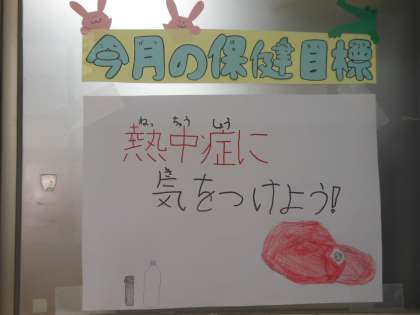 今月の保健目標
ねっ ちゅう しょう
熱中症に
き
気をつけよう!